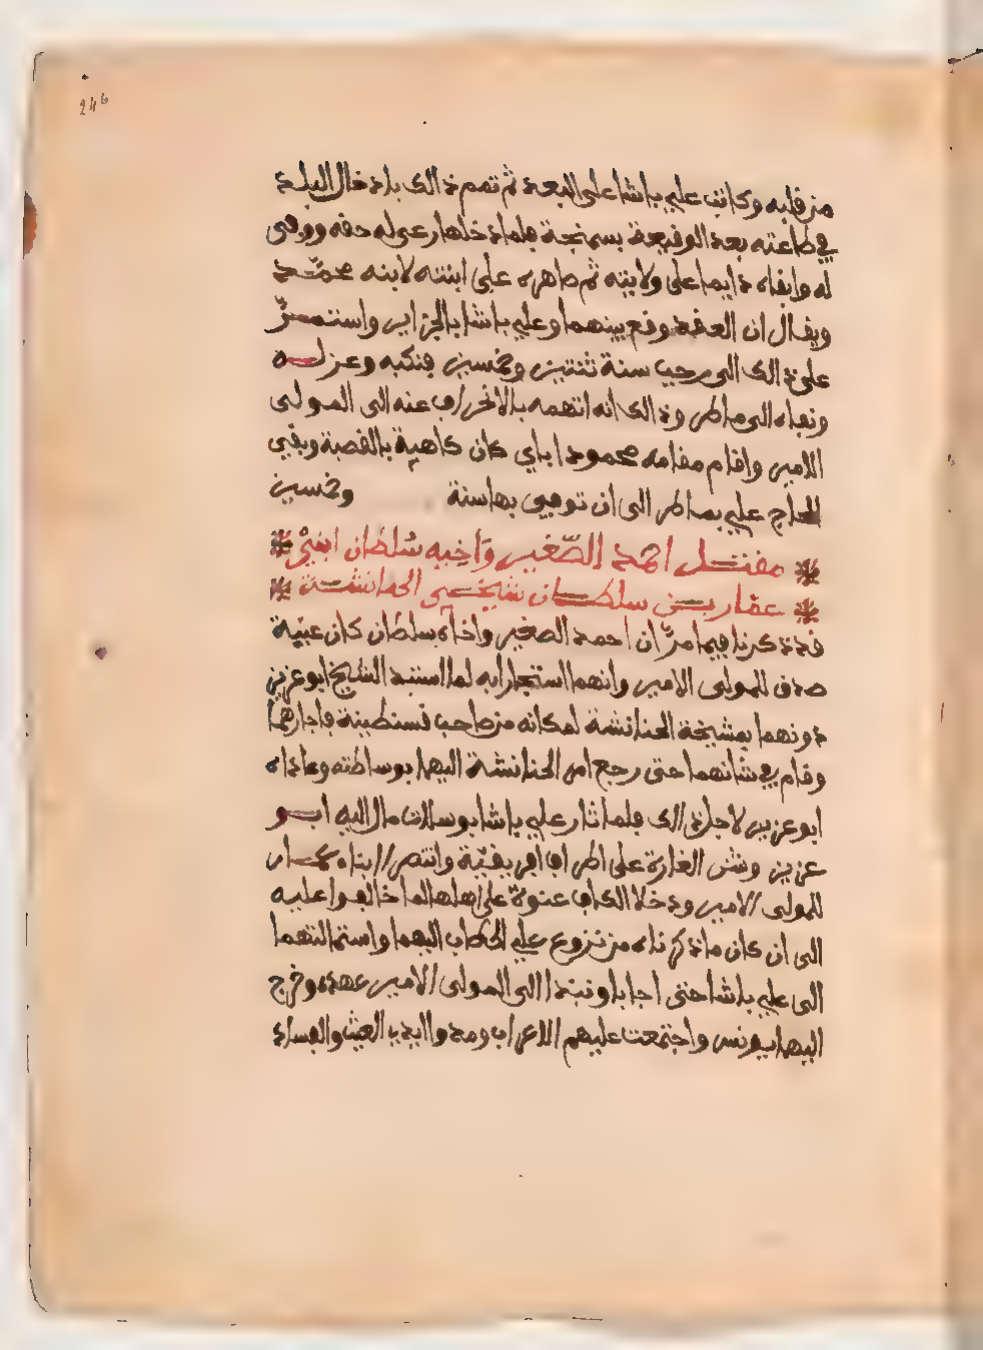 246
من قلبه وكاتب علي باشا على البعد ثم تمم ذالك بادخال البلد
في طاعته بعد الوقيعة بسمنجة فلما دخلها رعى له حقه ووفى
له وابقاه دايما على ولايته ثم صاهره على ابنته لابنه محمّد
ويقال ان العقد وقع بينهما وعلي باشا بالجزاير واستمرّ
على ذالك الى رجب سنة ثنتين وخمسين فنكبه وعزله
ونفاه الى ماطر وذالك انه اتهمه بالانحراف عنه الى المولى
الامير واقام مقامه محمود اباي كان كاهية بالقصبة وبقي
الحاج علي بماطر الى ان توفي بها سنة وخمسين
مقتل احمد الصّغير وَاخيه سُلطان ابنيْ
عمّار بن سلطان شيخي الحنانشة
قد ذكرنا فيما مرّ ان احمد الصغير واخاه سلطان كان عيبة
صدق للمولى الامير وانهما استجارا به لما استبد الشيخ ابو عزيز
دونهما بمشيخة الحنانشة لمكانه من صاحب قسنطينة فاجارهما
وقام في شانهما حتى رجع امر الحنانشة اليهما بوساطته وعاداه
ابو عزيز لاجل ذالك فلما ثار علي باشا بوسلات مال اليه ابو
عزيز وشن الغارة على اطراف افريقيّة وانتصر ابناء عمار
للمولى الامير ودخلا الكاف عنوة على اهلها لما خالفوا عليه
الى ان كان ما ذكرناه من نزوع علي الخطاب اليهما واستمالتهما
الى علي باشا حتى اجابا ونبذا الى المولى الامير عهده وخرج
اليهما يونس واجتمعت عليهم الاعراب ومدوا ايدي العيث والفساد